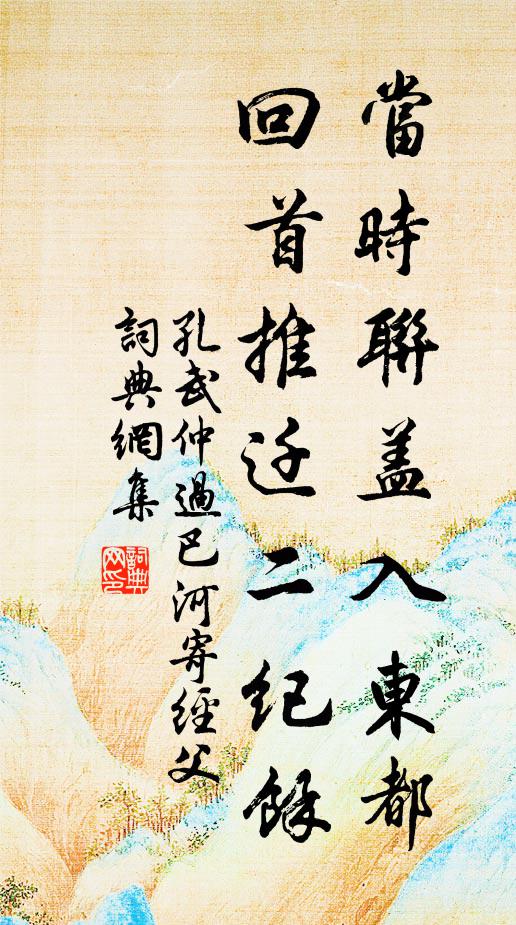 當時聯盖入東都
回首推迁二纪餘
孔武仲過巴河寄經父
詞典網集
詞典网印